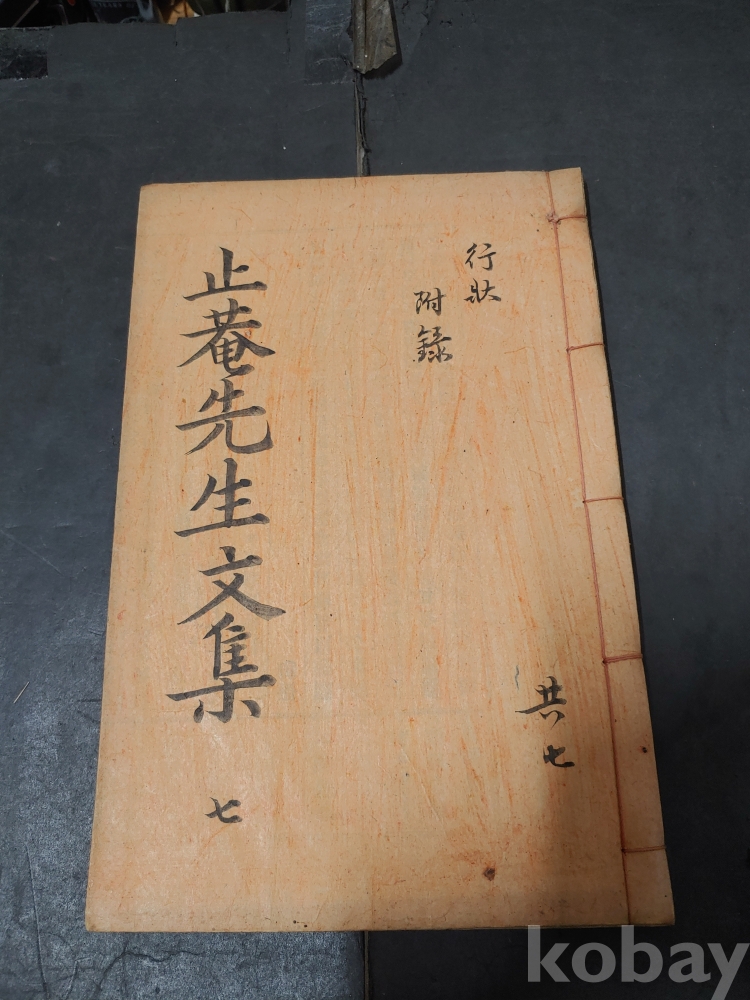 行狀
附錄
共七
止菴先生文集 七
kobay